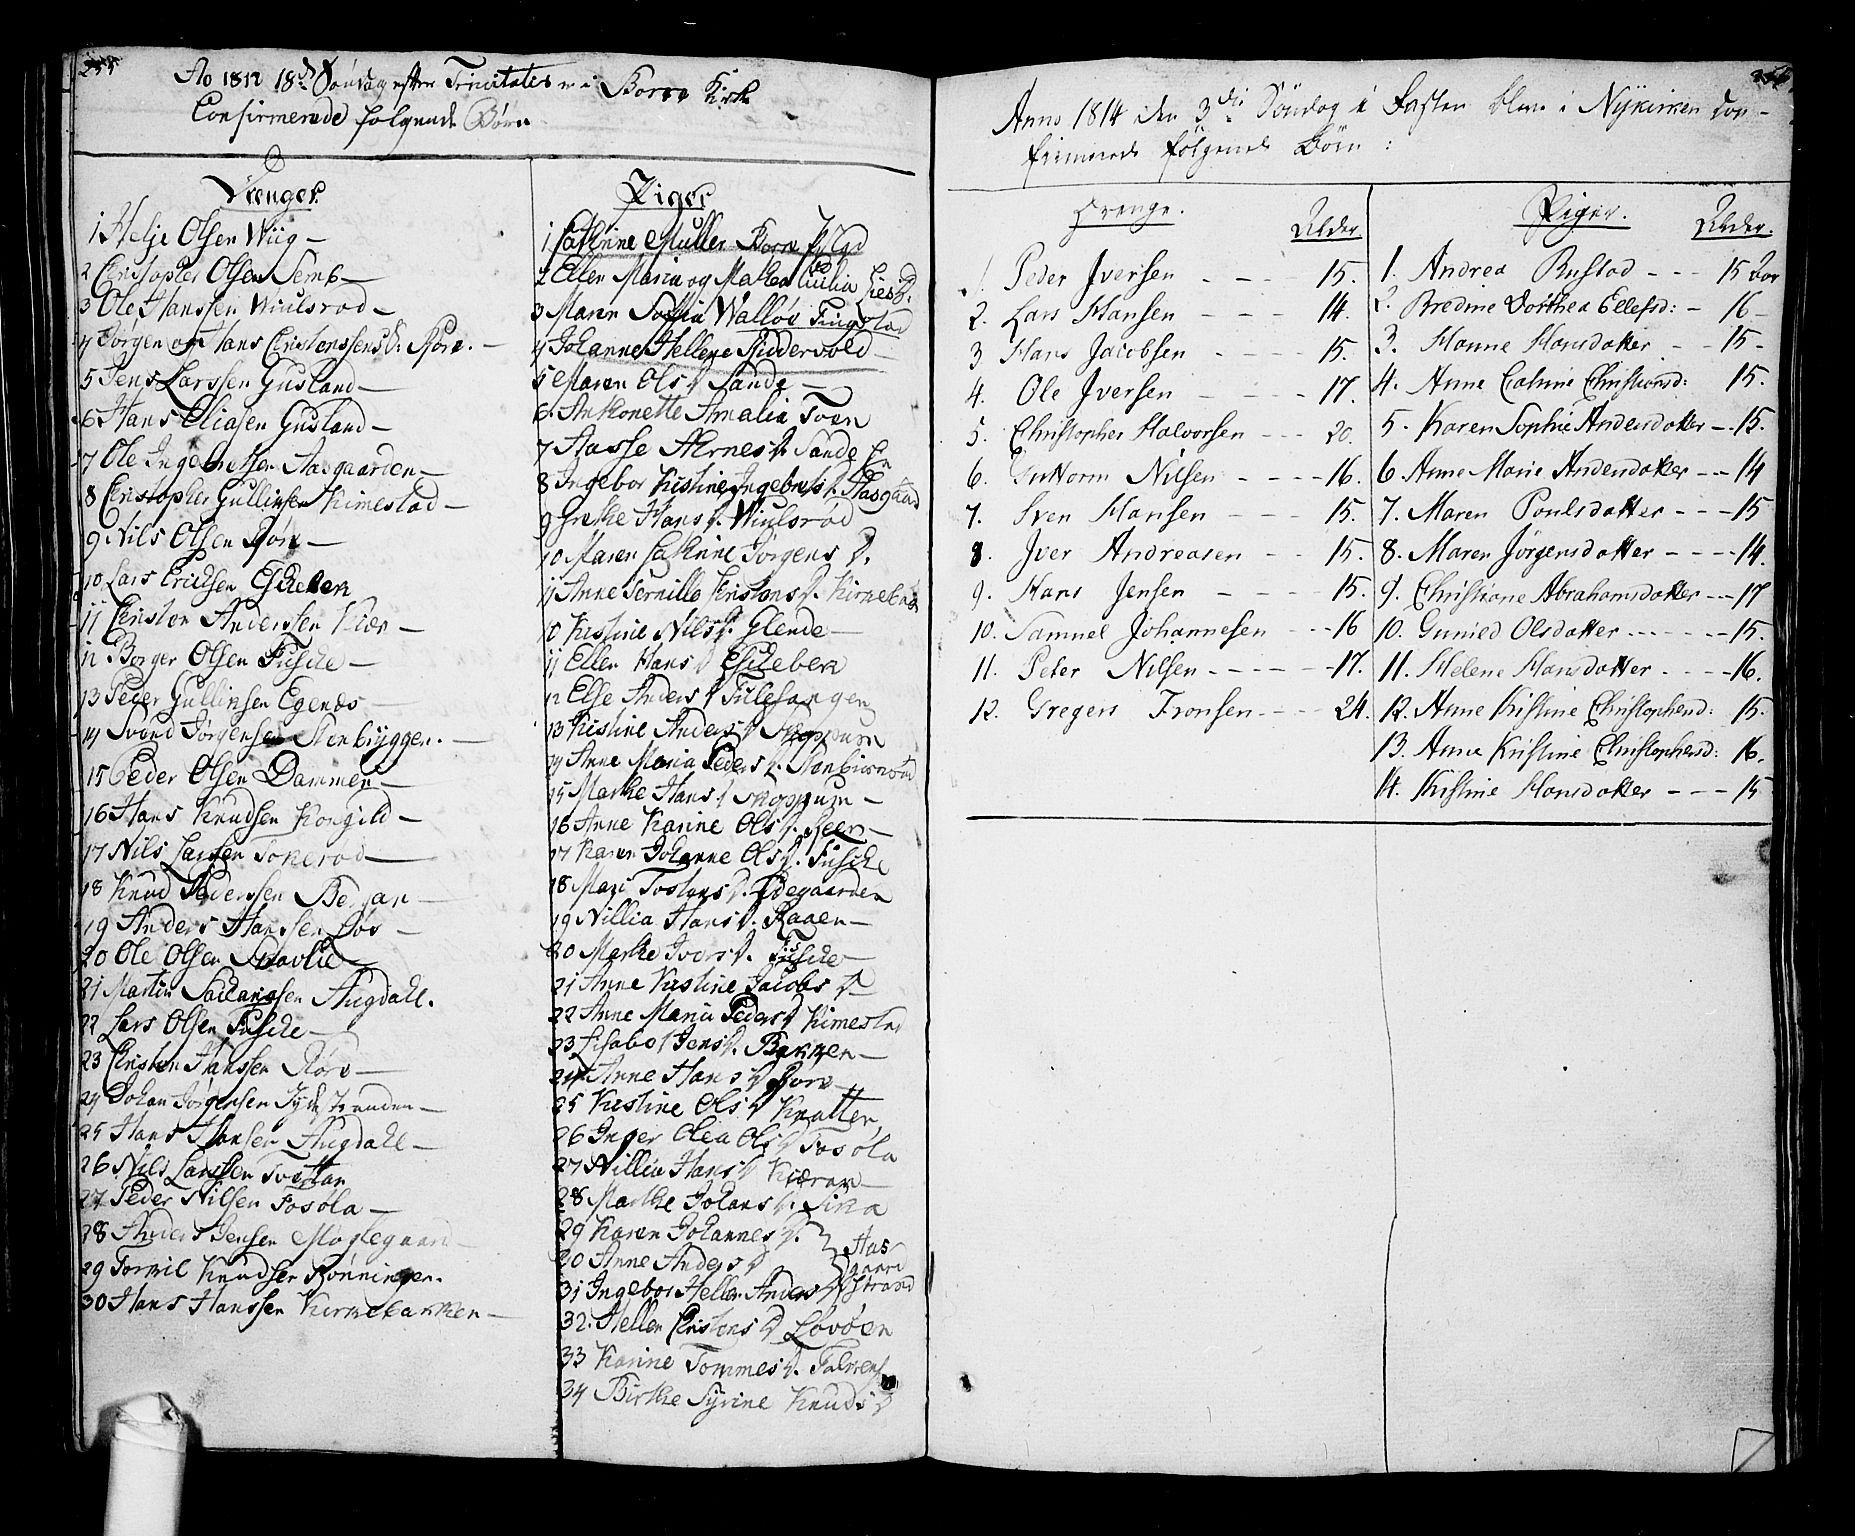 Ao 1812 18de Søndag efter Trinitates er i Borre Kirke
Confirmerede følgende Børn
Drenger
1 Helje Olsen Wiig
2 Cristopher Olsen Semb
3 Ole Hanssen Wiulsrod
4 Jørgen og Hans Cristenssens Rørv.
5 Jens Larssen Gusland
6 Hans Eliasen Gusland
7 Ole Ingebretsen Aasgaarden
8 Cristopher Gullinsen Kimestad
9 Nils Olsen Rørv
10 Lars Ericksen Eskeben
11 Cristen Anderssen Kiær
12 Borger Olsen Fuske
13 Peder Gullinsen Egenæs
14 Svend Jørgensen Stenbryggen.
15 Peder Olsen Dammen
16 Hans Knudsen Kongild
17 Nils Larssen Tokerod
18 Knud Pedersen Bergan
19 Anders Hanssen Løs
20 Ole Olsen Snavlie
21 Martin Sackarissen Augdahl.
22 Lars Olsen Fuske
23 Cristen Hanssen Rørv
24 Johan Jørgensen
25 Hans Hansen Augdahl
26 Nils Larssen Tveten
27 Peder Nilsen Fosøla
28 Anders Jensen Møglegaard
29 Tormil Knudsen Rønningen.
30 Hans Hanssen Kirkebakken
Piger
1 Cathrine Muller Borre
2 Ellen Maria og Mathea Cicilia Lies D.
3 Maren Sophia Walløs Fingstad
4 Johanne Hellene Riddervold
5 Maren Ols D Sande
6 Antonette Amalia Foen
7 Aasse Arnes D Sande
8 Ingebor Kistine Ingebrets D. Aasgaard
9 Grethe Hans D. Wiulsrød
10 Maren Cathrine Jørgens D.
11 Anne Pernille Cristens D. Kirkeb
10 Kistine Nils D. Glende
11 Ellen Hans D Eskeben
12 Else Anders D Fuglesangen
13 Kistine Anders D Skoppum
14 Anne Maria Peders D. Stenbiørnrød
15 Marthe Hans D Skoppum
16 Anne Karine Ols D. Skeen
17 Karen Johanne Ols D. Fuske
18 Mari Tostens D. Ødegaarden
19 Nillia Hans D. Raaen
20 Marthe Ivers D. Fuske
21 Anne Kistine Jacobs D
22 Anne Maria Peders D Kimestad
23 Lisabet Jens D. Bakken
24 Anne Hans D Rørv
25 Kistine Ols D Knatten
26 Inger Olea Ols D Fosøla
27 Nillia Hans D Kiæran
28 Marthe Johans D. Fika
29 Karen Johannes D.
30 Anne Anders D
31 Ingebor Hellen Anders D
Aasgaard Strand
32. Hellen Cristens D Løvøen
33 Karine Tommes D.
34 Birthe Syrine Knuds D
Anno 1814 den 3die Søndag i Fasten blev i Nykirken Con-
firmerede følgende Børn:
Drenge. Alder.
1. Peder Iversen - - 15.
2. Lars Hansen - - - 14.
3 Hans Jacobsen - - - 15.
4. Ole Iversen - - - 17.
5. Christopher Halvorsen - - - 20.
6. Guttorm Nilsen - - - - 16.
7. Sven Hansen - - - - 15.
8. Iver Andreasen - - 15.
9. Hans Jensen - - - - 15.
10. Samuel Johannesen - - - 16
11. Peter Nilsen - - - - - 17.
12. Gregers Tronsen - - - 24.
Piger. Alder.
1. Andrea Rustad - - - 15 Aar
2. Bredine Dorthea Ellefsd: - 16 -
3. Hanne Hansdatter - - 15 -
4. Anne Catrine Christiansd: 15.
5. Karen Sophie Andersdatter - 15.
6. Anne Marie Andersdatter - - 14
7. Maren Poulsdatter - - - 15
8. Maren Jørgensdatter - - - - 14.
9. Christiane Abrahamsdatter - - 17
10. Gunied Olsdatter - - - - - - 15.
11. Helene Hansdatter - - - - 16.
12. Anne Kristine Christophersd: 15.
13. Anne Kristine Christophersd: 16.
14. Kistine Hansdatter - - - 15